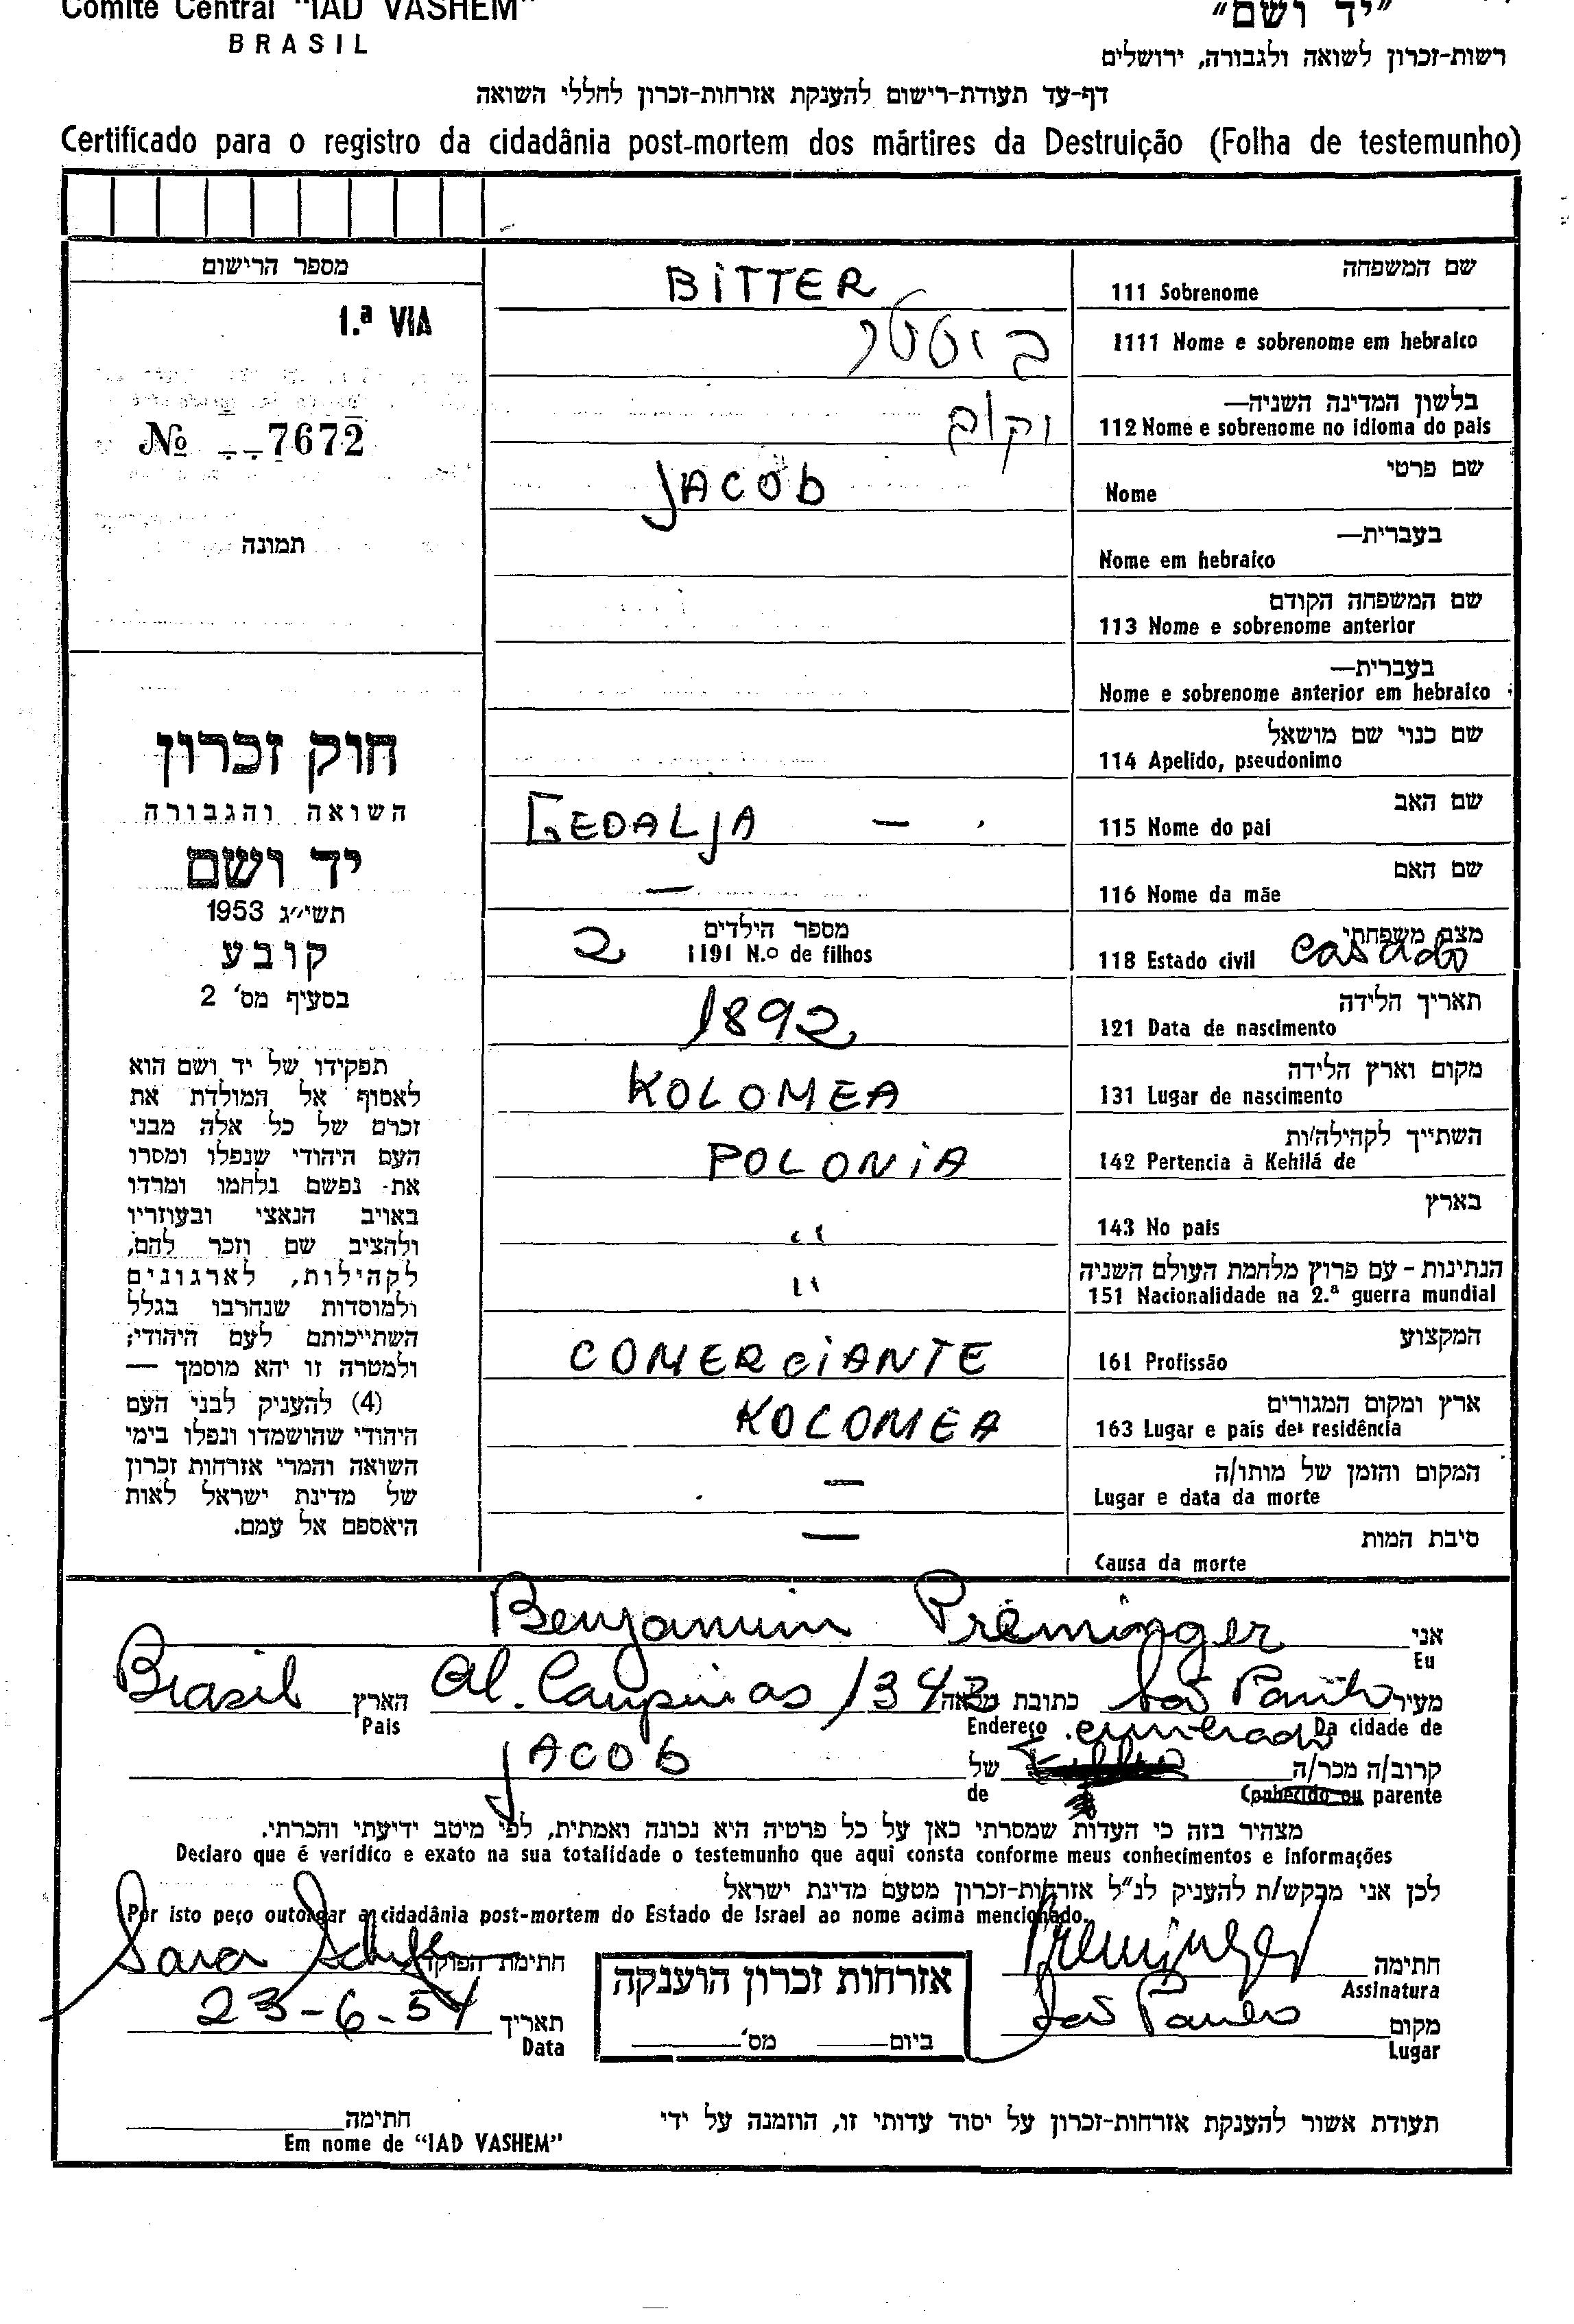 Comité Central "IAD VASHEM"
BRASIL
"יד ושם"
רשות-זכרון לשואה ולגבורה, ירושלים
דף-עד תעודת-רישום להענקת אזרחות-זכרון לחללי השואה
Certificado para o registro da cidadânia post-mortem dos mártires da Destruição (Folha de testemunho)
מספר הרישום
1.ª VIA
№ 7672
תמונה
חוק זכרון
השואה והגבורה
יד ושם
תשי״ג 1953
קובע
בסעיף מס' 2
תפקידו של יד ושם הוא
לאסוף אל המולדת את
זכרם של כל אלה מבני
העם היהודי שנפלו ומסרו
את נפשם נלחמו ומרדו
באויב הנאצי ובעוזריו
ולהציב שם וזכר להם,
לקהילות, לארגונים
ולמוסדות שנחרבו בגלל
השתייכותם לעם היהודי;
ולמטרה זו יהא מוסמך —
(4) להעניק לבני העם
היהודי שהושמדו ונפלו בימי
השואה והמרי אזרחות זכרון
של מדינת ישראל לאות
היאספם אל עמם.
שם המשפחה
111 Sobrenome BITTER
1111 Nome e sobrenome em hebraico ביטטר
בלשון המדינה השניה—
112 Nome e sobrenome no idioma do pais
שם פרטי
Nome JACOb
בעברית—
Nome em hebraico
שם המשפחה הקודם
113 Nome e sobrenome anterior
בעברית—
Nome e sobrenome anterior em hebraico
שם כנוי שם מושאל
114 Apelido, pseudonimo
שם האב
115 Nome do pai GEDALJA —
שם האם
116 Nome da mãe —
מצב משפחתי
118 Estado civil casado
מספר הילדים
1191 N.º de filhos 2
תאריך הלידה
121 Data de nascimento 1892
מקום וארץ הלידה
131 Lugar de nascimento KOLOMEA
השתייך לקהילה/ות
142 Pertencia à Kehilá de POLONIA
בארץ
143 No pais "
הנתינות - עם פרוץ מלחמת העולם השניה
151 Nacionalidade na 2.ª guerra mundial "
המקצוע
161 Profissão COMERCIANTE
ארץ ומקום המגורים
163 Lugar e país de residência KOLOMEA
המקום והזמן של מותו/ה
Lugar e data da morte —
סיבת המות
Causa da morte —
אני
Eu Benjamin Preminger
מעיר São Paulo כתובת מלאה Al. Campinas 1342 הארץ Brasil
Da cidade de Endereço Pais
קרוב/ה מכר/ה cunhado של JACOB
Conhecido ou parente de
מצהיר בזה כי העדות שמסרתי כאן על כל פרטיה היא נכונה ואמתית, לפי מיטב ידיעתי והכרתי.
Declaro que é verídico e exato na sua totalidade o testemunho que aqui consta conforme meus conhecimentos e informações
לכן אני מבקש/ת להעניק לנ"ל אזרחות-זכרון מטעם מדינת ישראל
Por isto peço outorgar a cidadânia post-mortem do Estado de Israel ao nome acima mencionado.
חתימה Preminger
Assinatura
חתימת הפוקד Sara
אזרחות זכרון הוענקה
ביום מס'
מקום São Paulo
Lugar
תאריך 23-6-54
Data
תעודת אשור להענקת אזרחות-זכרון על יסוד עדותי זו, הוזמנה על ידי
חתימה
Em nome de "IAD VASHEM"